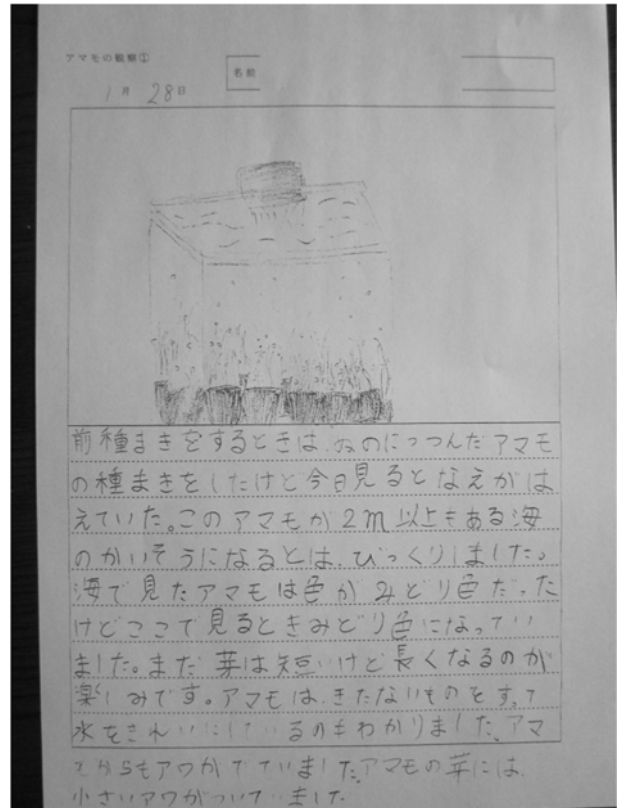 アマモの観察①
名前
1月 28日
前種まきをするときは、ぬのにつつんだアマモ
の種まきをしたけど今日見るとなえがは
えていた。このアマモが2m以上もある海
のかいそうになるとは、びっくりしました。
海で見たアマモは色がみどり色だった
けどここで見るときみどり色になってい
ました。まだ芽は短いけど長くなるのが
楽しみです。アマモは、きたないものをすって
水をきれいにしているのもわかりました。アマ
モからもアワがでていました。アマモの芽には、
小さいアワがついていました